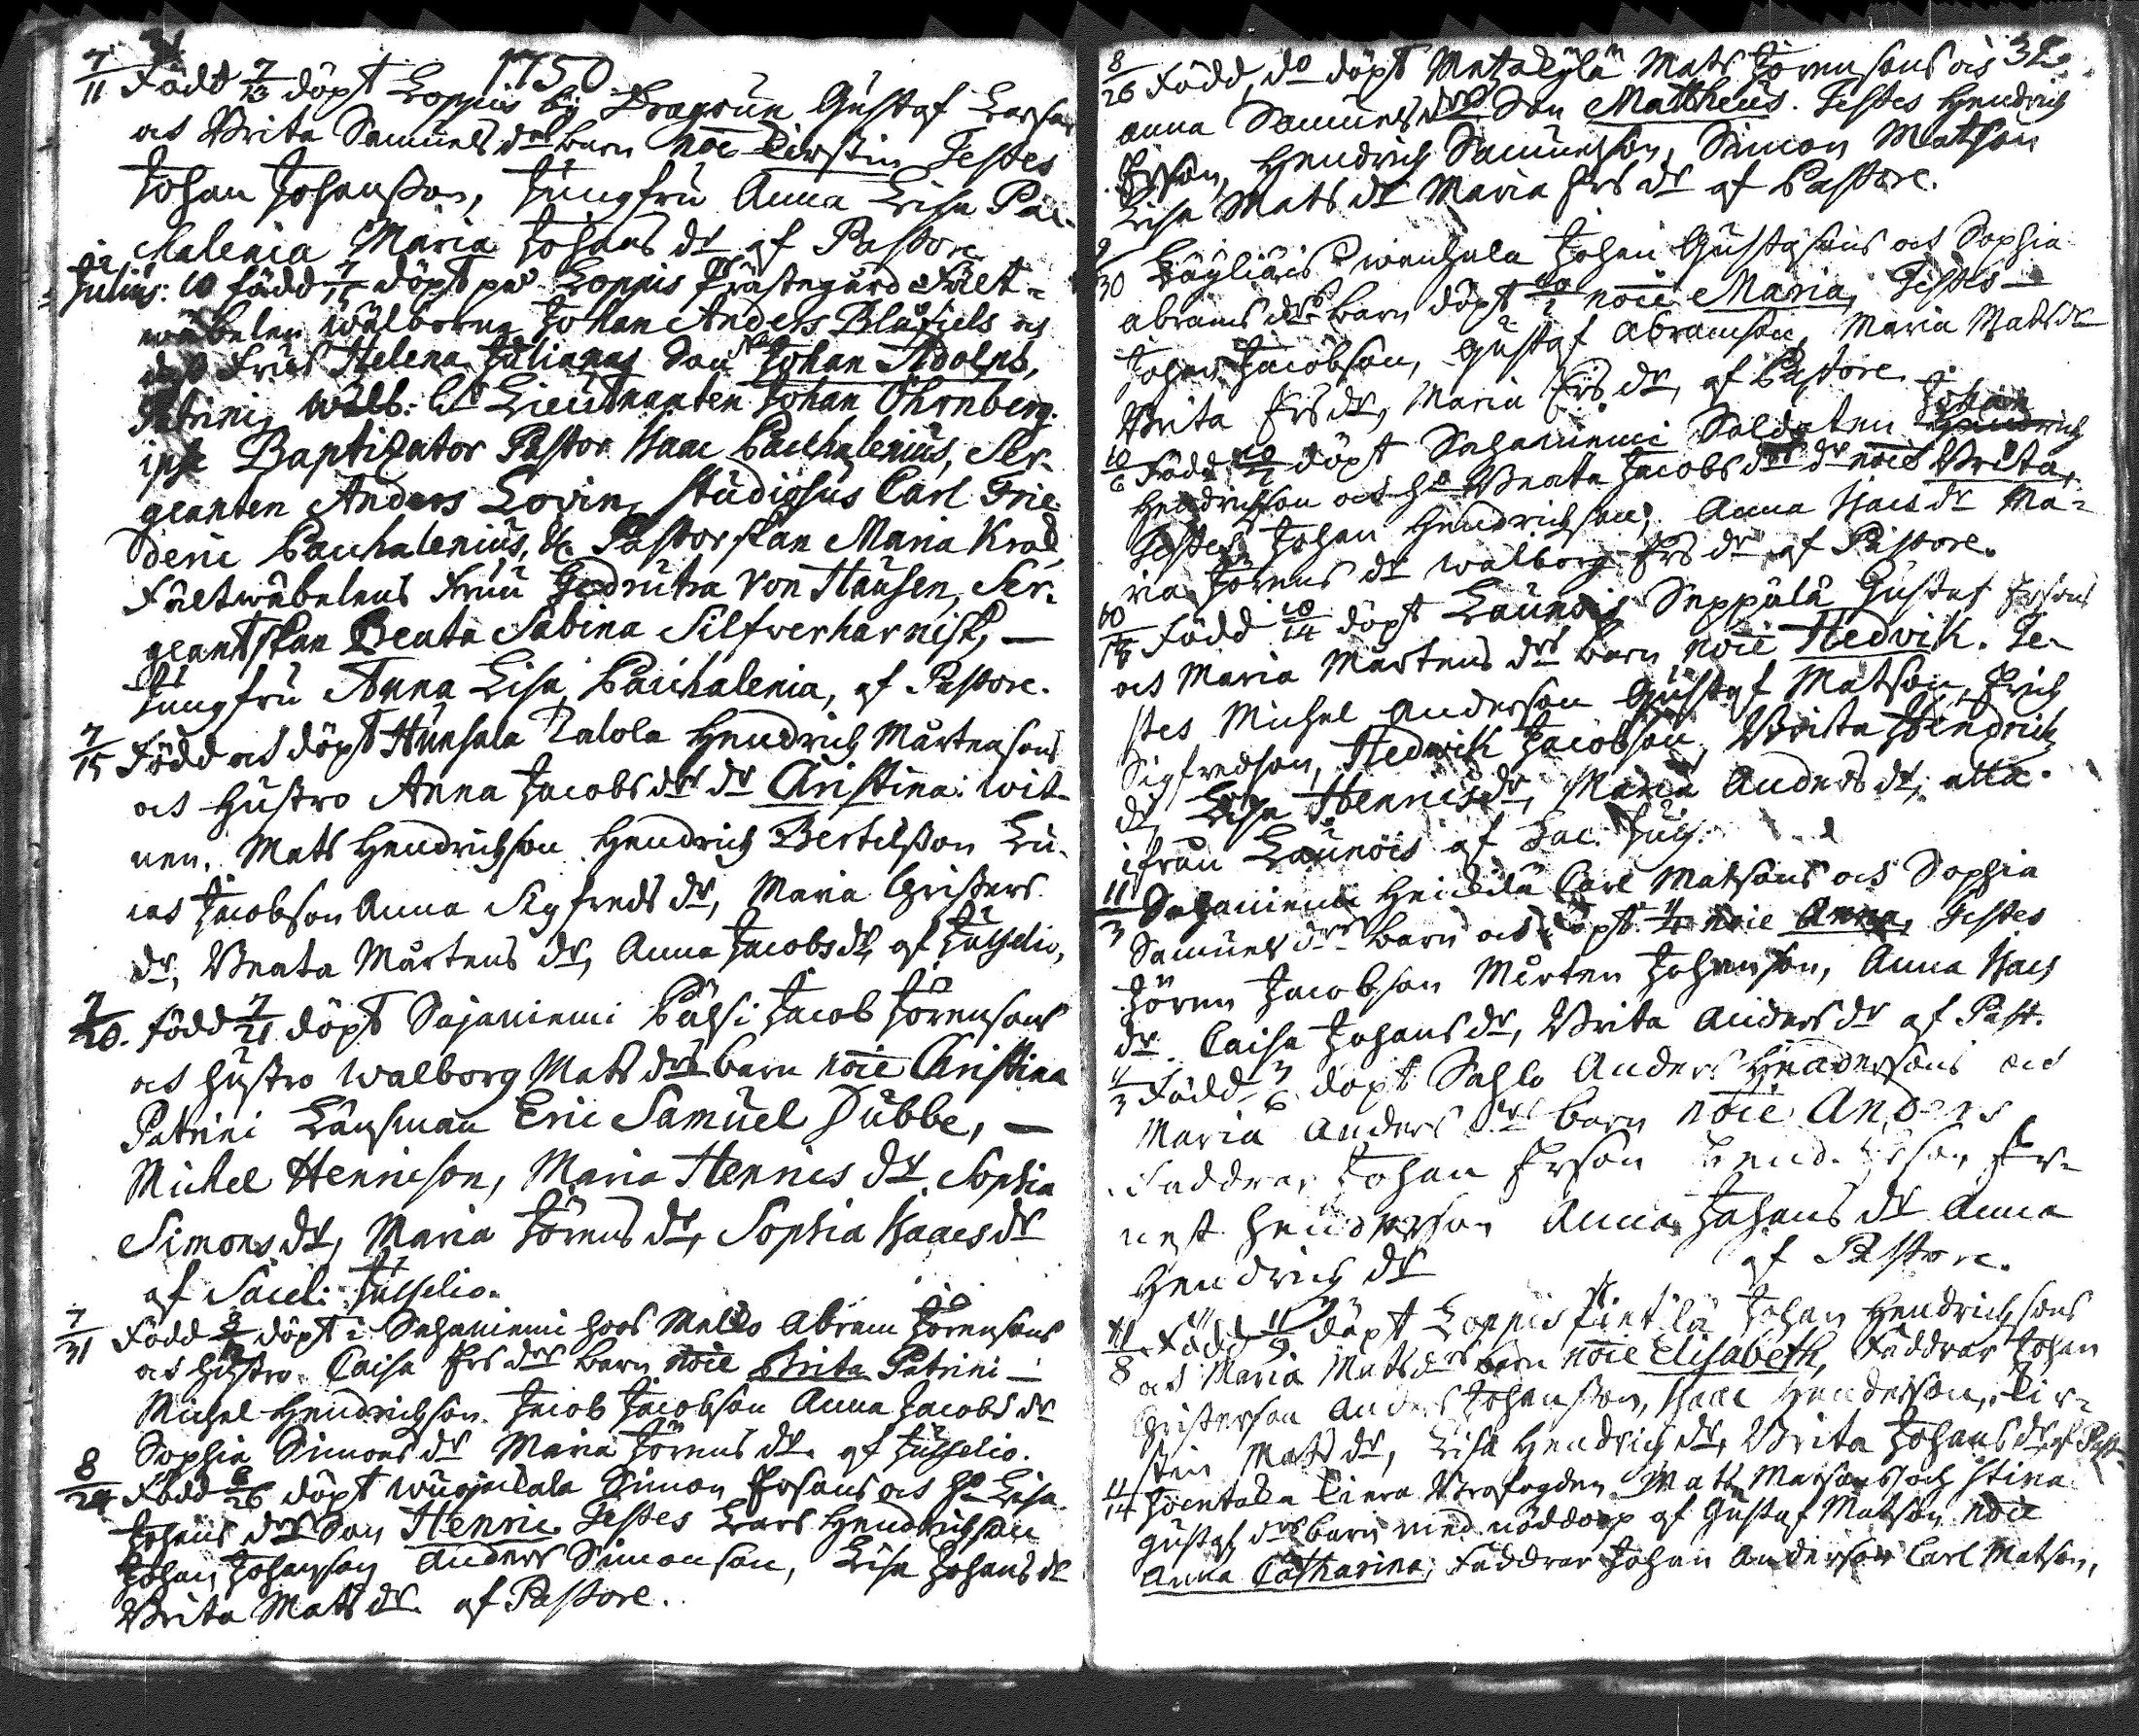 1750
7/11 Född 7/13 döpt Loppis by Dragoun Gustaf Larsons
as Brita Samuels drs barn noīe Kirstin Testes
Johan Johansson, Jungfru Anna Lisa Pac-
chalenia Maria Johans dr af Pastore
Julius: 10 född 7/15 döpt på Loppis Prästegård Fält-
wäbelen Wälborne Johan Anders Blåfield os
dess Frus Helena Julianas Son Johan Adolph,
Patrini, Wälb: Hr Lieutnanten Johan Öhrnberg.
ipse Baptizator Pastor Isaac Pacchalenius, Ser-
geanten Anders Lovin, Studiosus Carl Frie-
deric Pacchalenius, &. Pastorskan Maria Krod,
Fältwäbelens Fruu Gedrutha von Hausen, Ser-
geantskan Beata Sabina Silfverharnisk, —
Jungfru Anna Lisa Pacchalenia, af Pastore.
7/15 Född os döpt Hunsala Talola Hendrich Mårtensons
os Hustro Anna Jacobs drs dr Christina: wit-
nen. Mats Hendrichson Hendrich Bertilsson Lu-
cas Jacobson Anna Sigfreds dr, Maria Christers
dr, Beata Mårtens dr, Anna Jacobs dr, af Juselio,
7/20. Född 7/21 döpt Sajaniemi Pälsi Jacob Jörensons
os hustro Walborg Mats drs barn noīe Christina
Patrini Länsman Eric Samuel Dubbe, —
Michel Hennicson, Maria Hennics dr. Sophia
Simons dr, Maria Jörens dr, Sophia Isaacs dr
af Sacel: Juselio.
7/31 Född 8/ döpt i Sajaniemi hoos Mallo Abram Jörensons
os hustro Caisa Ers drs barn noīe Brita Patrini —
Michel Hendrichson. Jacob Jacobson Anna Jacobs dr
Sophia Simons dr Maria Jörens dr. af Juselio.
8/24 Född 8/26 döpt Simon Ersons os Ho Lisa
Johans drs Son Henric. Testes Lars Hendrichson
Johan Johanson Anders Simonson, Lisa Johans dr
Brita Mats dr. af Pastore.
8/26 Född, do döpt Metzkylä Mats Jörensons os 32.
Anna Samuels drs Son Mattheus. Testes Hendrich
Erson, Hendrich Samuelson, Simon Matson
Lisa Mats dr Maria Ers dr af Pastore.
9/30 Johan Gustafsons os Sophia
Abrams drs barn döpt 10/2 noīe Maria, Testes —
Johan Jacobson, Gustaf Abramson, Maria Mats dr
Brita Ers dr, Maria Ers dr, af Pastore.
10/6 Född 10/ döpt Sajaniemi Soldaten Johan
Hendrichson os Ho Beata Jacobs drs dr noīe Brita,
Testes Johan Hendrichson; Anna Isacs dr Ma-
ria Jörens dr Walborg Ers dr af Pastore.
10/13 Född 10/14 döpt Launois Seppälä Gustaf Ersons
os Maria Mårtens drs barn noīe Hedvik. Te-
stes Michel Anderson Gustaf Matson, Erich
Sigfredson, Hedwik Jacobson, Brita Hendrichs
dr, Lisa Hennics dr, Maria Anders dr, alla
ifrån Launois af Sac: Jus:
11/3 Sajaniemi Heickilä Carl Matsons os Sophia
Samuels drs barn os döpt 11/4 noīe Anna, Testes
Jören Jacobson Mårten Johanson, Anna Isacs
dr. Caisa Johans dr, Brita Anders dr af Past.
Född döpt Sahlo Anders Hendersons os
Maria Anders drs barn noīe Anders
Faddrar Johan Erson Hend. Erson Er-
nest Henderson Anna Johans dr Anna
Hendrichs dr af Pastore.
11/8 Född 11/9 döpt Loppis Johan Hendrichsons
os Maria Mats drs barn noīe Elisabeth, Faddrar Johan
Christerson Anders Johansson, Isaac Henderson, Kir-
stin Mats dr, Lisa Hendrichs dr, Brita Johans dr, af Past.
11/14 Mats Matsons och Stina
Gustafs drs barn med nöddop af Gustaf Matson noīe
Anna Catharina, Faddrar Johan Anderson Carl Matson,